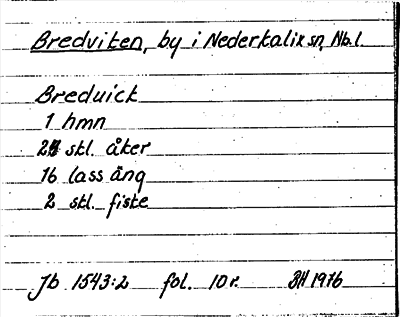 Bredviken, by i Nederkalix sn, Nb.l.
Breduick
1 hmn
2 stl. åker
16 lass äng
2 stl. fiske
Jb 1543:2 fol. 10 r. BH 1976